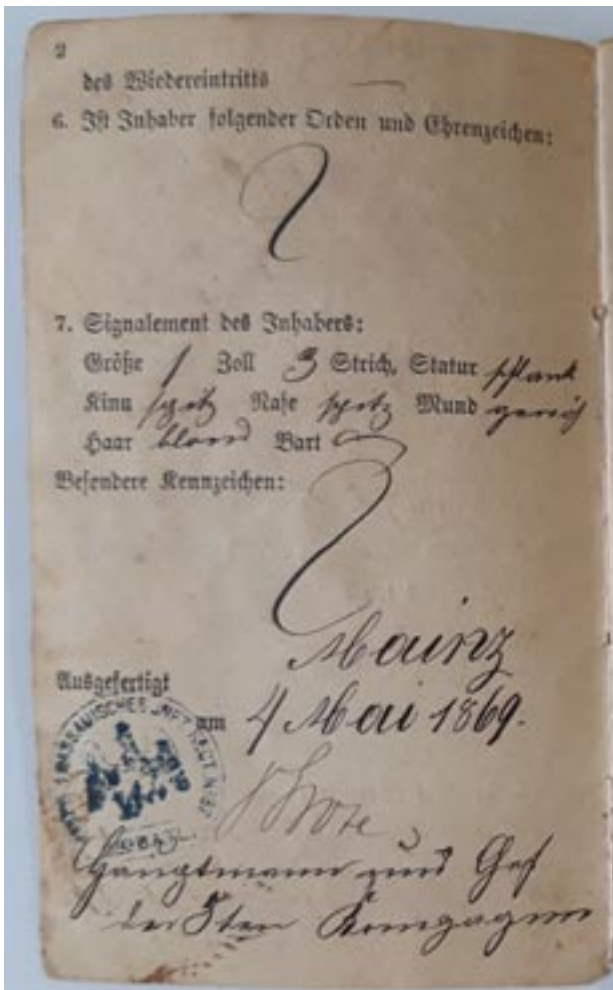 2
des Wiedereintritts
6. Ist Inhaber folgender Orden und Ehrenzeichen:
7. Signalement des Inhabers:
Größe 1 Zoll 3 Strich, Statur schlank
Kinn spitz Nase spitz Mund
Haar blond Bart
Besondere Kennzeichen:
Mainz
Ausgefertigt
am 4 Mai 1869.
NASSAUISCHES INFT REGT Nº 87
Hauptmann und Chef
der 8ten Kompagnie